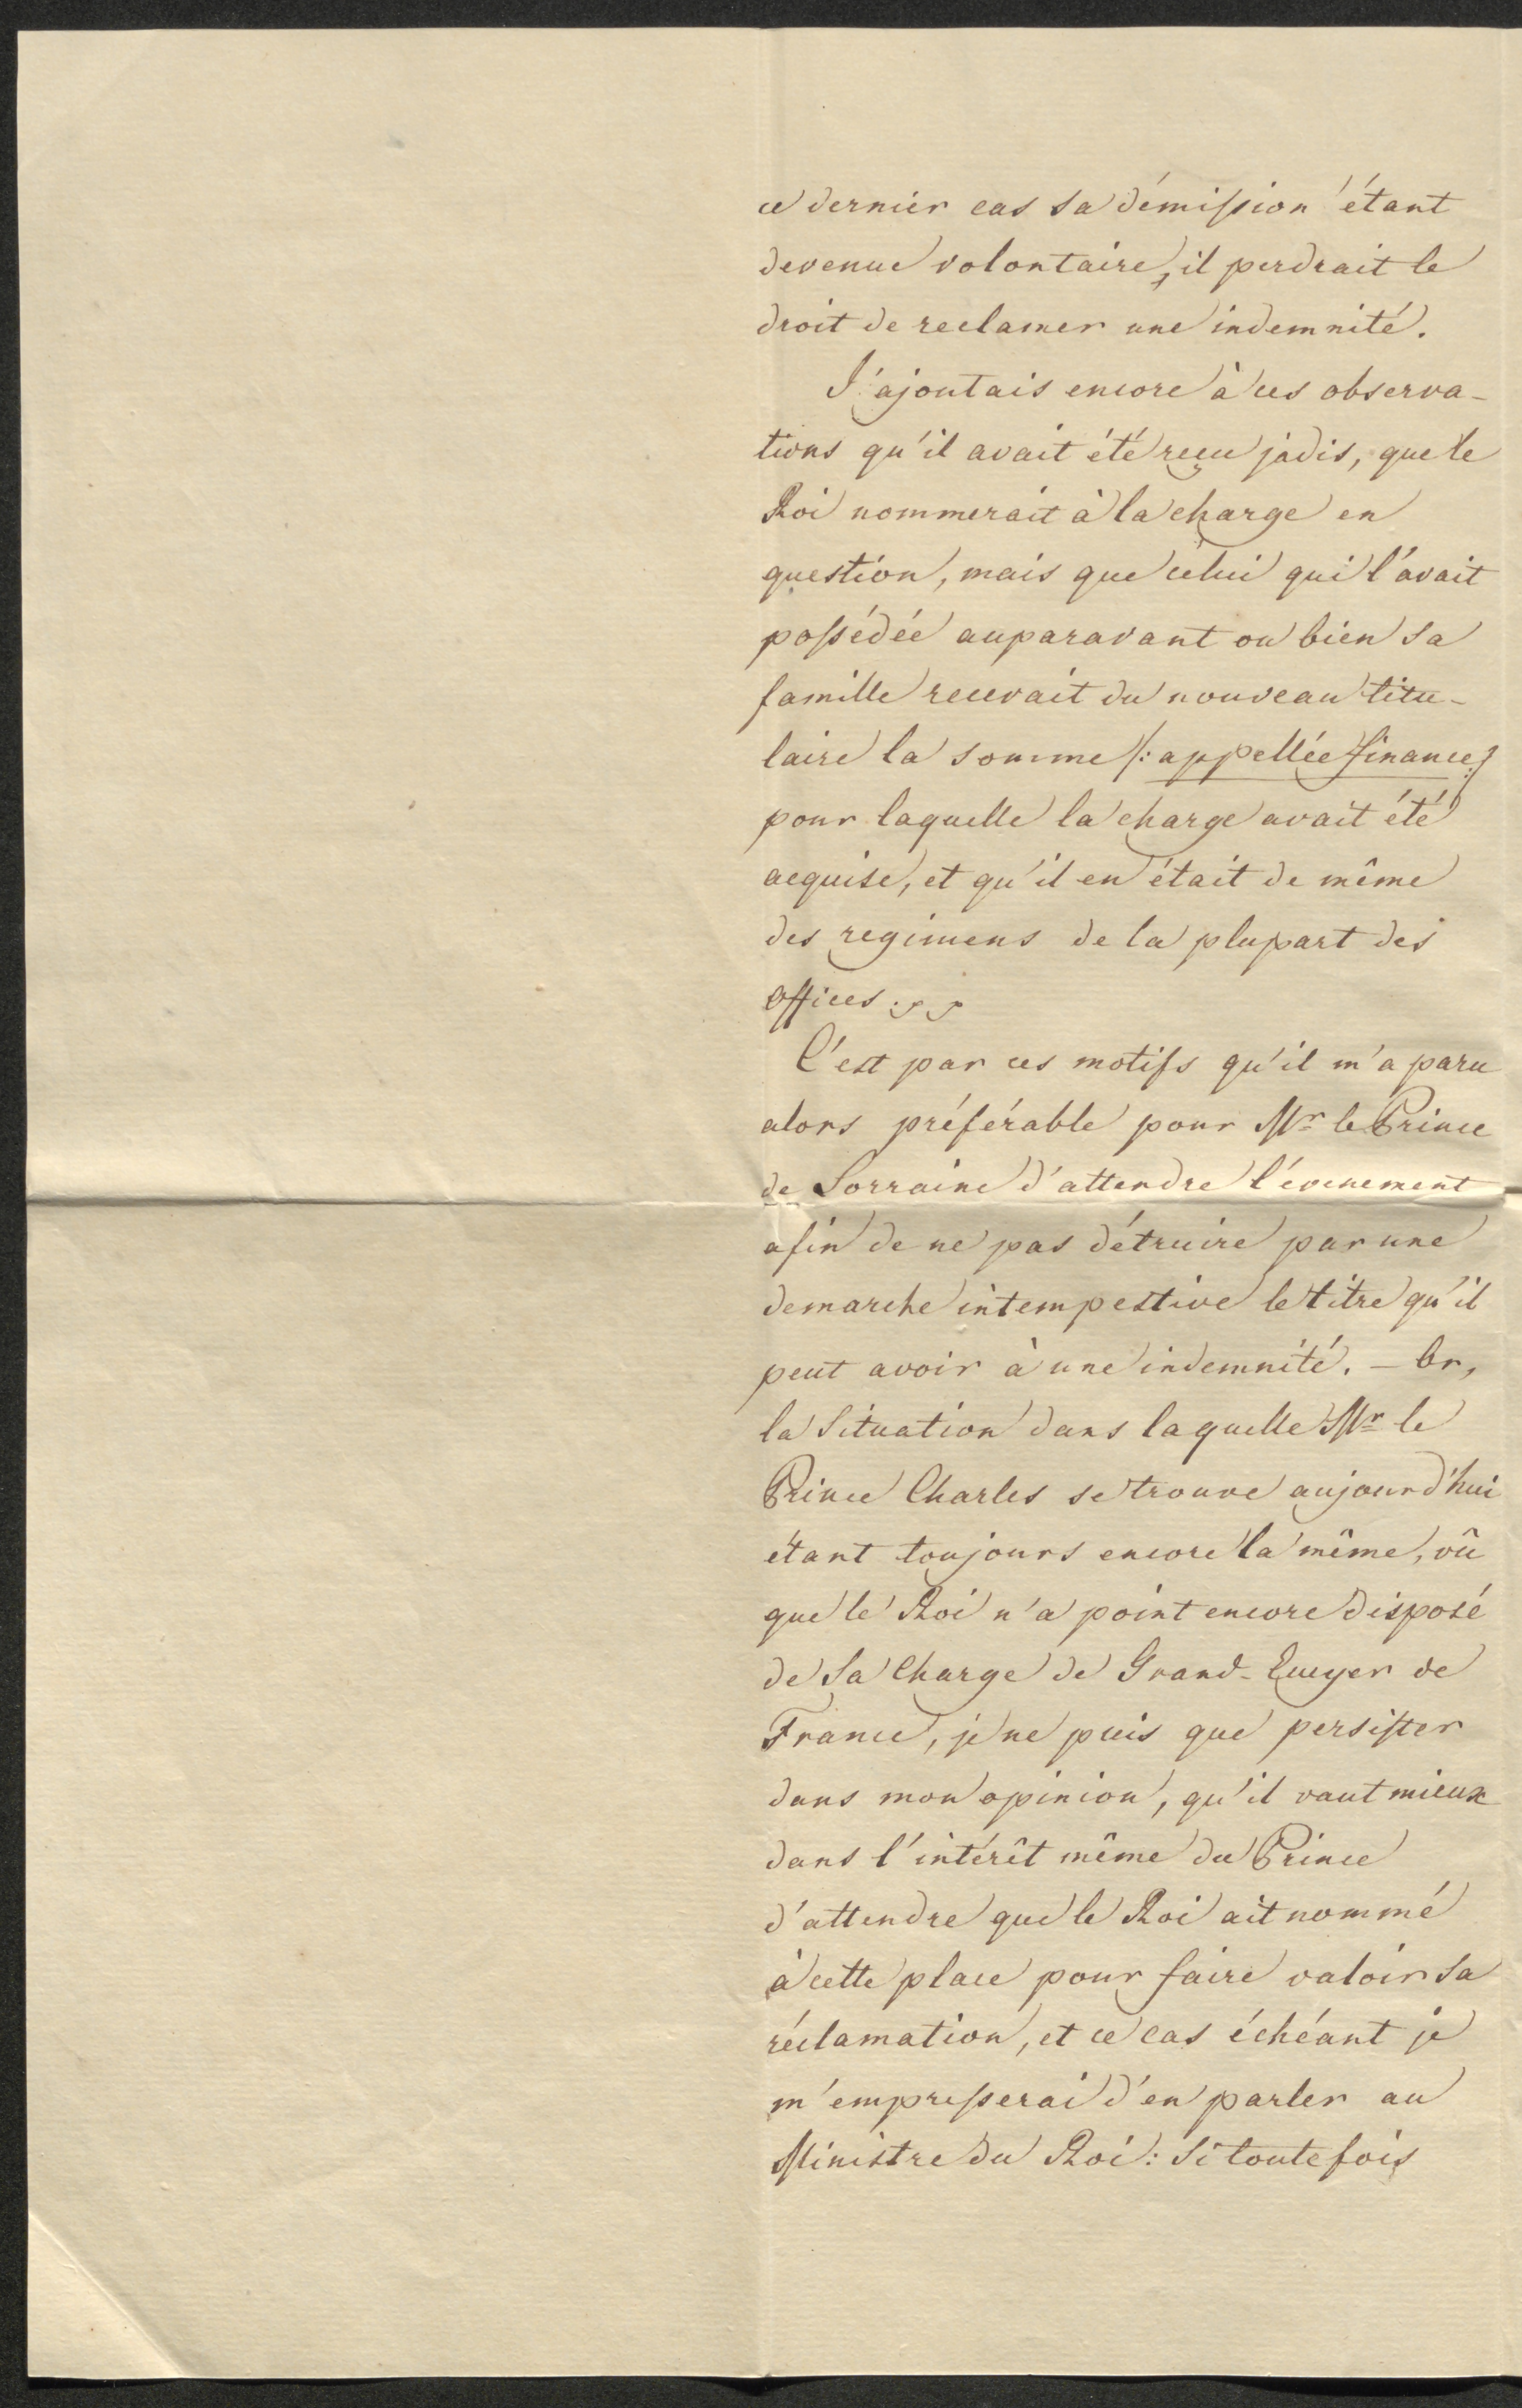 ce dernier cas sa démission étant
devenue volontaire, il perdrait le
droit de reclamer une indemnité.
J'ajoutais encore à ces observa-
tions qu'il avait été reçu jadis, que le
Roi nommerait à la charge en
question, mais que celui qui l'avait
possédée auparavant ou bien sa
famille recevait du nouveau titu-
laire la somme /: appellée finance :/
pour laquelle la charge avait été
acquise, et qu'il en était de même
des regimens de la plupart des
offices.
C'est par ces motifs qu'il m'a paru
alors préférable pour Mr le Prince
de Lorraine d'attendre l'évenement
afin de ne pas détruire par une
demarche intempestive le titre qu'il
peut avoir à une indemnité. — Or,
la situation dans laquelle Mr le
Prince Charles se trouve aujourd'hui
étant toujours encore la même, vû
que le Roi n'a point encore disposé
de sa Charge de Grand-Ecuyer de
France, je ne puis que persister
dans mon opinion, qu'il vaut mieux
dans l'intérêt même du Prince
d'attendre que le Roi ait nommé
à cette place pour faire valoir sa
réclamation, et ce cas échéant je
m'empresserai d'en parler au
Ministre du Roi: Si toutefois